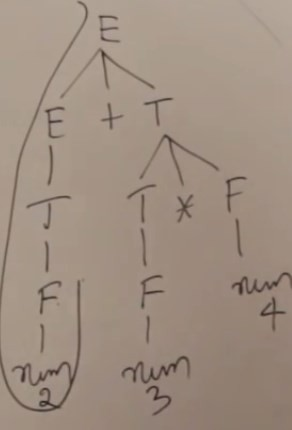 E
E + T
T T * F
F F num
num num 4
2 3